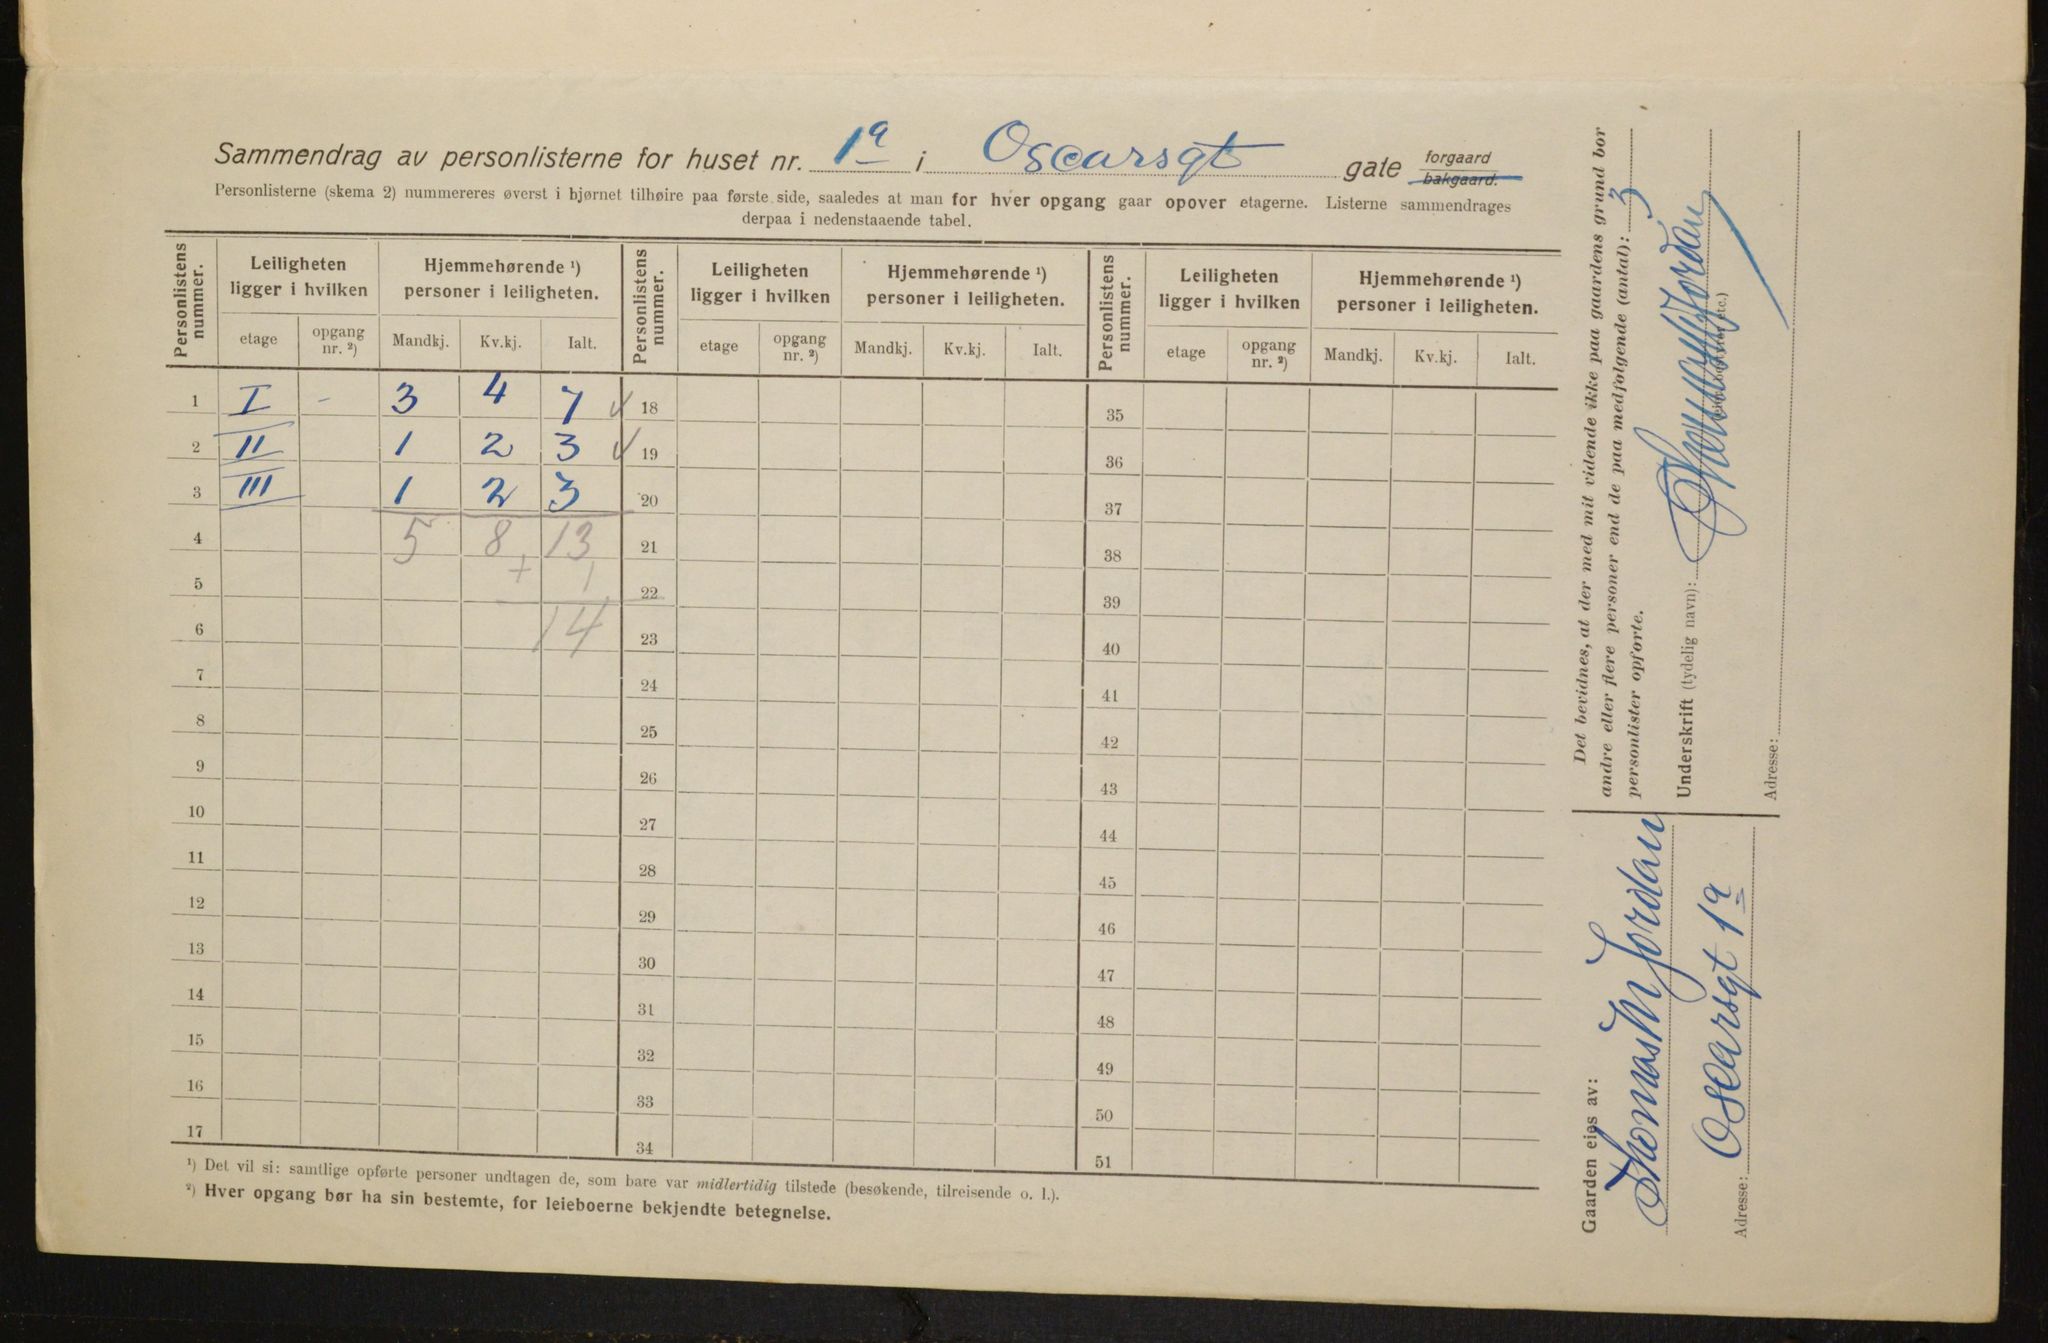 Sammendrag av personlisterne for huset nr. 1a i Oscarsgt gate forgaard bakgaard.
Personlisterne (skema 2) nummereres øverst i hjørnet tilhøire paa første side, saaledes at man for hver opgang gaar opover etagerne. Listerne sammendrages
derpaa i nedenstaaende tabel.
Personlistens nummer. Leiligheten ligger i hvilken Hjemmehørende ¹) personer i leiligheten. Personlistens nummer. Leiligheten ligger i hvilken Hjemmehørende ¹) personer i leiligheten. Personlistens nummer. Leiligheten ligger i hvilken Hjemmehørende ¹) personer i leiligheten.
etage opgang nr. ²) Mandkj. Kv.kj. Ialt. etage opgang nr. ²) Mandkj. Kv.kj. Ialt. etage opgang nr. ²) Mandkj. Kv.kj. Ialt.
1 I - 3 4 7 18 35
2 II 1 2 3 19 36
3 III 1 2 3 20 37
4 5 8 13 21 38
5 + 1 22 39
6 14 23 40
7 24 41
8 25 42
9 26 43
10 27 44
11 28 45
12 29 46
13 30 47
14 31 48
15 32 49
16 33 50
17 34 51
¹) Det vil si: samtlige opførte personer undtagen de, som bare var midlertidig tilstede (besøkende, tilreisende o. l.).
²) Hver opgang bør ha sin bestemte, for leieboerne bekjendte betegnelse.
Det bevidnes, at der med mit vidende ikke paa gaardens grund bor
andre eller flere personer end de paa medfølgende (antal): 3
personlister opførte.
Underskrift (tydelig navn): Thomas M Jordan
Adresse:
Gaarden eies av:
Thomas M Jordan
Adresse: Oscarsgt 1a